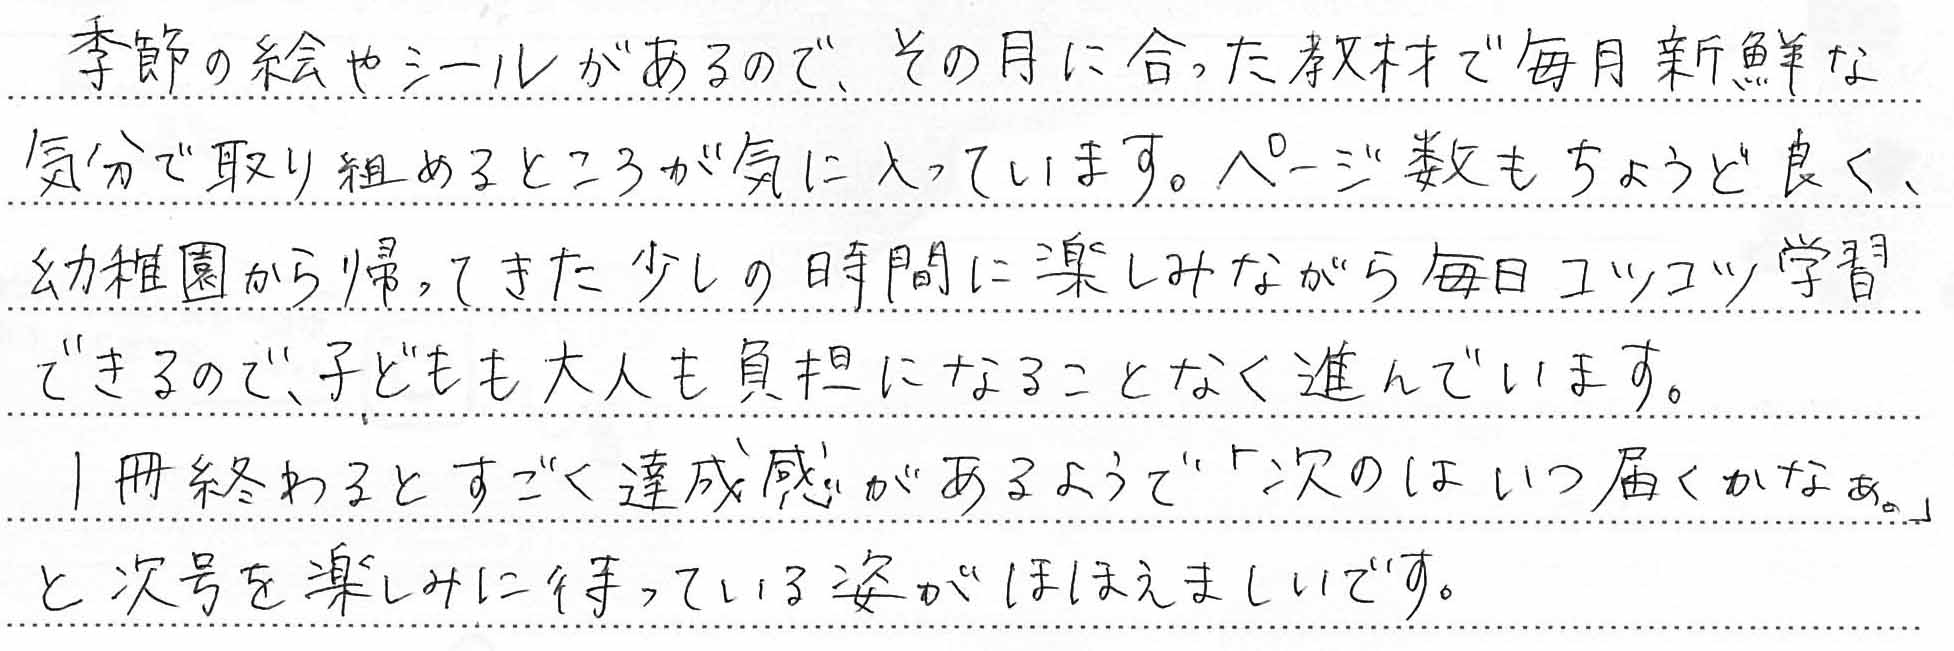 季節の絵やシールがあるので、その月に合った教材で毎月新鮮な
気分で取り組めるところが気に入っています。ページ数もちょうど良く、
幼稚園から帰ってきた少しの時間に楽しみながら毎日コツコツ学習
できるので、子どもも大人も負担になることなく進んでいます。
1冊終わるとすごく達成感があるようで「次のはいつ届くかなぁ。」
と次号を楽しみに待っている姿がほほえましいです。